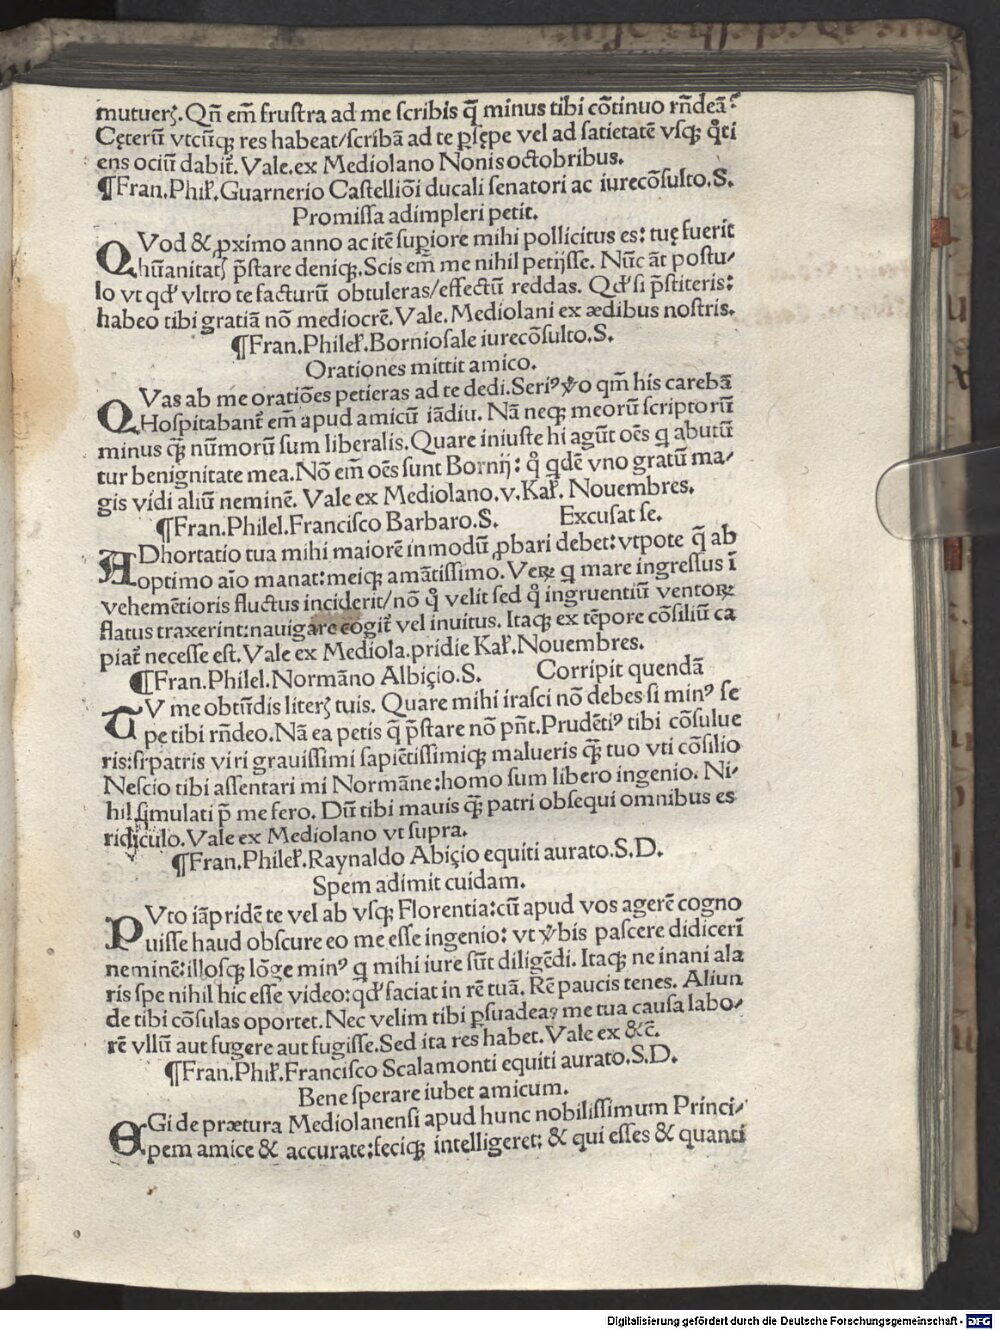 mutuerꝭ. Qñ em̄ frustra ad me scribis q̄ minus tibi cōtinuo rn̄deā?
Cęterū vtcūqꝫ res habeat/scribā ad te p̱sępe vel ad satietatē vsqꝫ q̊ti
ens ociū dabiť. Vale.ex Mediolano Nonis octobribus.
¶Fran.Phiľ.Guarnerio Castelliōi ducali senatori ac iurecōsulto.S.
Promissa adimpleri petit.
QVod & ꝓximo anno ac itē supiore mihi pollicitus es: tuę fuerit
hūanitatꝭ p̄stare deniqꝫ.Scis em̄ me nihil petijsse. Nūc āt postu/
lo vt qđ vltro te facturū obtuleras/effectū reddas. Qđ si p̄stiteris:
habeo tibi gratiā nō mediocrē.Vale. Mediolani ex ædibus nostris.
¶Fran.Phileľ.Borniosale iurecōsulto.S.
Orationes mittit amico.
QVas ab me oratiōes petieras ad te dedi.Seriꝰ v̊o qm̄ his carebā
Hospitabanť em̄ apud amicū iādiu. Nā neqꝫ meorū scriptorū
minus qꝫ̄ nūmorū sum liberalis.Quare iniuste hi agūt oēs q abutū
tur benignitate mea.Nō em̄ oēs sunt Bornij: q̊ qdē vno gratū ma/
gis vidi aliū neminē. Vale ex Mediolano.v.Kaľ. Nouembres.
¶Fran.Philel.Francisco Barbaro.S. Excusat se.
ADhortatio tua mihi maiorē inmodū ꝓbari debet:vtpote q̄ ab
optimo aīo manat:meiqꝫ amātissimo. Veꝝ q mare ingressus ī
vehemētioris fluctus inciderit/nō q̊ velit sed q̊ ingruentiū ventoꝝ
flatus traxerint:nauigare cogiť vel inuitus. Itaqꝫ ex tēpore cōsiliū ca
piať necesse est.Vale ex Mediola.pridie Kaľ.Nouembres.
¶Fran.Philel.Normāno Albiçio.S. Corripit quendā
TV me obtūdis literꝭ tuis. Quare mihi irasci nō debes si minꝰ se
pe tibi rn̄deo.Nā ea petis q̄ p̄stare nō pn̄t.Prudētiꝰ tibi cōsulue
ris:si patris viri grauissimi sapiētissimiqꝫ malueris qꝫ̄ tuo vti cōsilio
Nescio tibi assentari mi Normāne:homo sum libero ingenio. Ni/
hil simulati p̄ me fero. Dū tibi mauis qꝫ̄ patri obsequi omnibus es
ridiculo.Vale ex Mediolano vt supra.
¶Fran.Phileľ.Raynaldo Abiçio equiti aurato.S.D.
Spem adimit cuidam.
PVto iāpridē te vel ab vsqꝫ Florentia:cū apud vos agerē cogno
uisse haud obscure eo me esse ingenio: vt v̊bis pascere didicerī
neminē:illosqꝫ lōge minꝰ q mihi iure sūt diligēdi. Itaqꝫ ne inani ala
ris spe nihil hic esse video:qđ faciat in rē tuā. Rē paucis tenes. Aliun
de tibi cōsulas oportet.Nec velim tibi p̱suadeaꝫ me tua causa labo/
rē vllū aut fugere aut fugisse.Sed ita res habet.Vale ex &c̄.
¶Fran.Phiľ.Francisco Scalamonti equiti aurato.S.D.
Bene sperare iubet amicum.
EGi de prætura Mediolanensi apud hunc nobilissimum Princi/
pem amice & accurate:feciqꝫ intelligeret: & qui esses & quanti
Digitalisierung gefördert durch die Deutsche Forschungsgemeinschaft - DFG